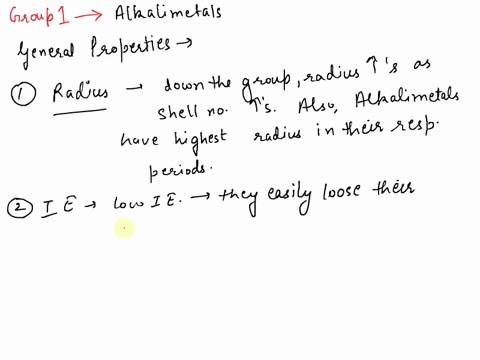 Group 1 → Alkalimetals
General Properties →
① Radius → down the group, radius ↑'s as
shell no. ↑'s. Also, Alkalimetals
have highest radius in their resp.
periods.
② I E → Low I E. → they easily loose their